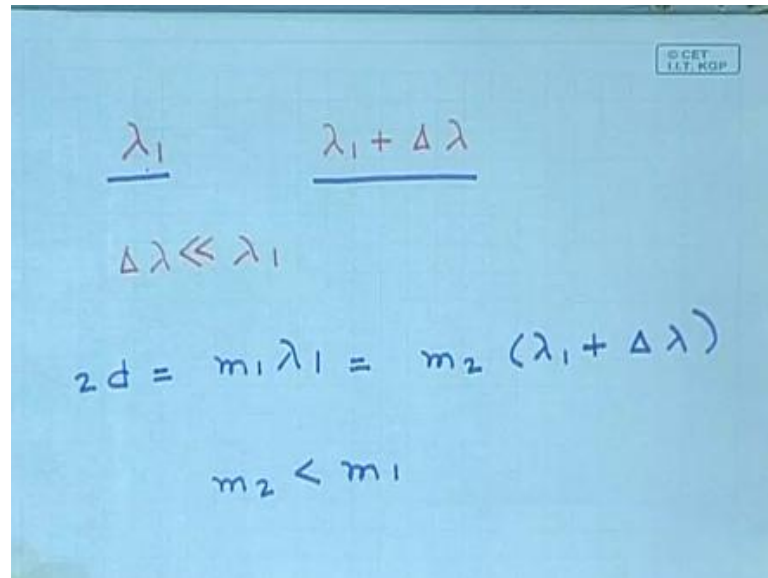 © CET
I.I.T. KGP
λ₁ λ₁ + Δ λ
Δ λ << λ₁
2d = m₁ λ₁ = m₂ (λ₁ + Δ λ)
m₂ < m₁